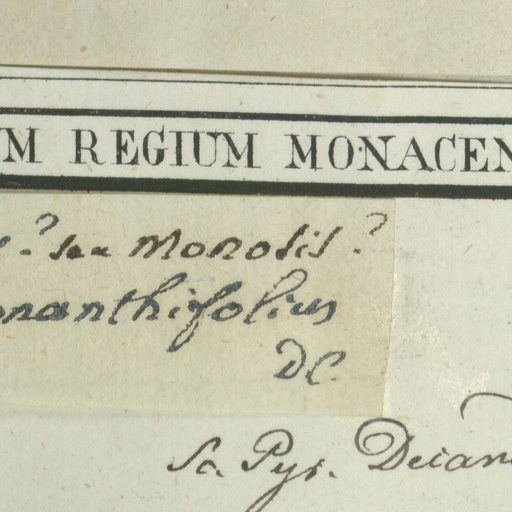 UM REGIUM MONACEN
? seu Monosis ?
onanthifolius
DC.
Sc. Pyr. Decan